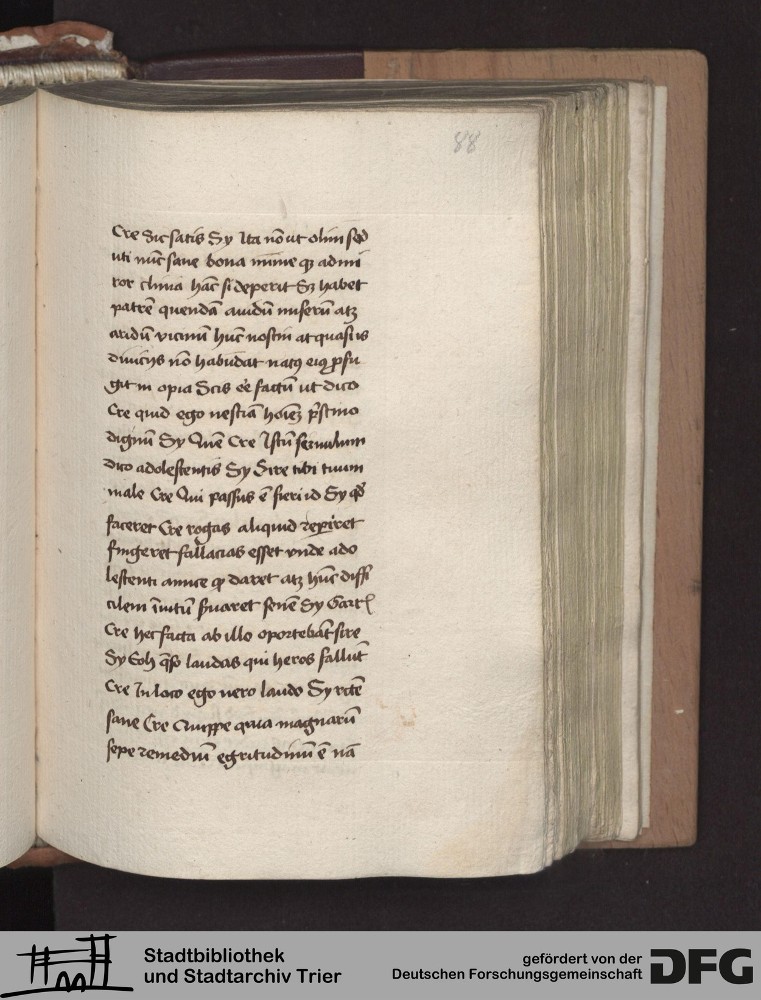 88
Cre Sic satis Sy Ita nō ut olim sed
uti nūc sane bona mime qꝫ admi
ror clinia hāc si deperit Sꝫ habet
patrē quendā auidū miserū atꝫ
aridū vicinū hūc nostin at quasi is
diuicijs nō habūdat natꝯ eiꝯ ꝓfu
git in opia Scis eē factū ut dico
Cre quid ego nesciā hoīeꝫ p̄stino
dignū Sy Quē Cre Istū seruulum
dico adolescentis Sy Sire tibi tuum
male Cre Qui passus ē fieri id Sy qd̄
faceret Cre rogas aliquid reperiret
fingeret fallacias esset vnde ado
lescenti amice qͣ daret atꝫ hūc diffi
cilem īuitū s̄uaret senē Sy Garrꝭ
Cre hec facta ab illo oportebāt sire
Sy Eoh q̄so laudas qui heros fallūt
Cre In loco ego vero laudo Sy rctē
sane Cre Quippe quia magnarū
sepe remediū egritudinū ē nā
Stadtbibliothek
und Stadtarchiv Trier
gefördert von der
Deutschen Forschungsgemeinschaft
DFG